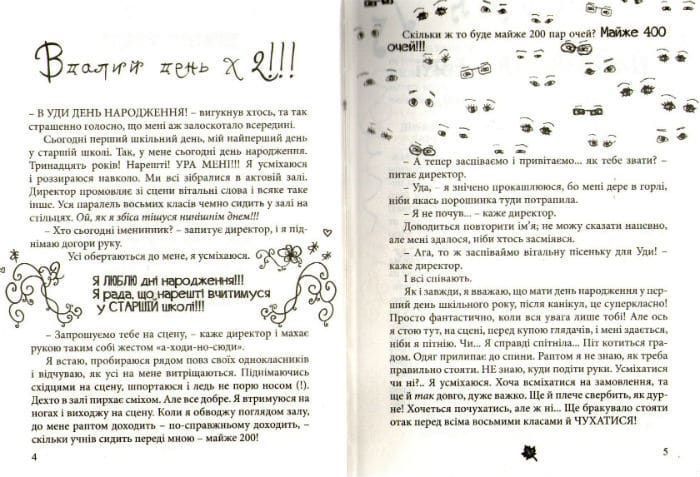 Вдалий день х 2!!!
– В УДИ ДЕНЬ НАРОДЖЕННЯ! – вигукнув хтось, та так
страшенно голосно, що мені аж залоскотало всередині.
Сьогодні перший шкільний день, мій найперший день
у старшій школі. Так, у мене сьогодні день народження.
Тринадцять років! Нарешті! УРА МЕНІ!!! Я усміхаюся
і роззираюся навколо. Ми всі зібралися в актовій залі.
Директор промовляє зі сцени вітальні слова і всяке таке
інше. Уся паралель восьмих класів чемно сидить у залі на
стільцях. Ой, як я збіса тішуся нинішнім днем!!!
– Хто сьогодні іменинник? – запитує директор, і я під-
німаю догори руку.
Усі обертаються до мене, я усміхаюся.
Я ЛЮБЛЮ дні народження!!!
Я рада, що нарешті вчитимуся
у СТАРШІЙ школі!!!
– Запрошуємо тебе на сцену, – каже директор і махає
рукою таким собі жестом «а-ходи-но-сюди».
Я встаю, пробираюся рядом повз своїх однокласників
і відчуваю, як усі на мене витріщаються. Піднімаючись
східцями на сцену, шпортаюся і ледь не порю носом (!).
Дехто в залі пирхає сміхом. Але все добре. Я втримуюся на
ногах і виходжу на сцену. Коли я обводжу поглядом залу,
до мене раптом доходить – по-справжньому доходить, –
скільки учнів сидить переді мною – майже 200!
4
Скільки ж то буде майже 200 пар очей? Майже 400
очей!!!
– А тепер заспіваємо і привітаємо... як тебе звати? –
питає директор.
– Уда, – я знічено прокашлююся, бо мені дере в горлі,
ніби якась порошинка туди потрапила.
– Я не почув... – каже директор.
Доводиться повторити ім’я; не можу сказати напевно,
але мені здалося, ніби хтось засміявся.
– Ага, то ж заспіваймо вітальну пісеньку для Уди! –
каже директор.
І всі співають.
Як і завжди, я вважаю, що мати день народження у пер-
ший день шкільного року, після канікул, це суперкласно!
Просто фантастично, коли вся увага лише тобі! Але ось
я стою тут, на сцені, перед купою глядачів, і мені здається,
ніби я пітнію. Чи... Я справді спітніла... Піт котиться гра-
дом. Одяг прилипає до спини. Раптом я не знаю, як треба
правильно стояти. НЕ знаю, куди подіти руки. Усміхатися
чи ні?.. Я усміхаюся. Хоча всміхатися на замовлення, та
ще й так довго, дуже важко. Ще й плече свербить, як дур-
не! Хочеться почухатись, але ж ні... Ще бракувало стояти
отак перед всіма восьмими класами й ЧУХАТИСЯ!
5